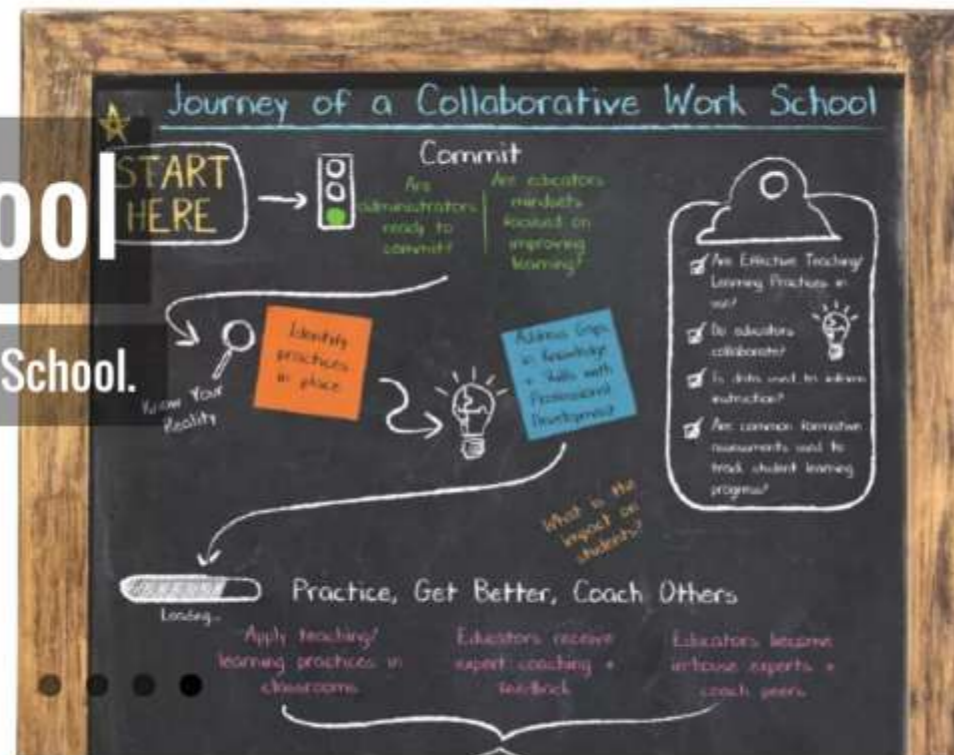 Journey of a Collaborative Work School
START
HERE
ool
School.
Commit
Are
administrators
ready to
commit?
Are educators
mindsets
focused on
improving
learning?
Know Your
Reality
Identify
practices
in place
Address Gaps
in Knowledge
+ Skills with
Professional
Development
Are Effective Teaching/
Learning Practices in
use?
Do educators
collaborate?
Is data used to inform
instruction?
Are common formative
assessments used to
track student learning
progress?
What is the
impact on
students?
Loading...
Practice, Get Better, Coach Others
Apply teaching/
learning practices in
classrooms
Educators receive
expert coaching +
feedback
Educators become
inhouse experts +
coach peers